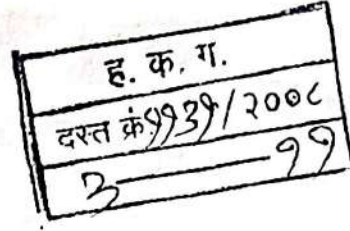 ह. क. ग.
दस्त क्रं ११३१/२००८
३ — ११